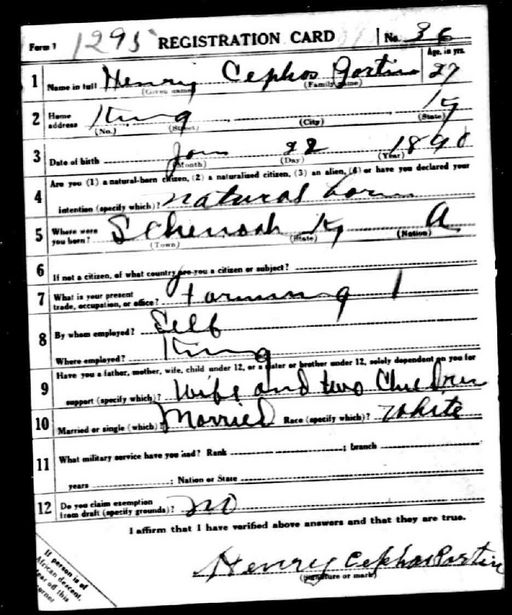 Form 1 1295 REGISTRATION CARD No. 36
1 Name in full Henry Cephas Age, in yrs. 27
(Given name) (Family name)
2 Home address King Ky
(No.) (Street) (City) (State)
3 Date of birth Jan 22 1890
(Month) (Day) (Year)
4 Are you (1) a natural-born citizen, (2) a naturalized citizen, (3) an alien, (4) or have you declared your
intention (specify which)? natural born
5 Where were you born? Ky A
(Town) (State) (Nation)
6 If not a citizen, of what country are you a citizen or subject?
7 What is your present trade, occupation, or office? Farming 1
8 By whom employed? Self
Where employed? King
9 Have you a father, mother, wife, child under 12, or a sister or brother under 12, solely dependent on you for
support (specify which)? Wife and two Children
10 Married or single (which)? Married Race (specify which)? White
11 What military service have you had? Rank ; branch
years ; Nation or State
12 Do you claim exemption from draft (specify grounds)? no
I affirm that I have verified above answers and that they are true.
Henry Cephas
(Signature or mark)
If person is of
African descent,
tear off this
corner